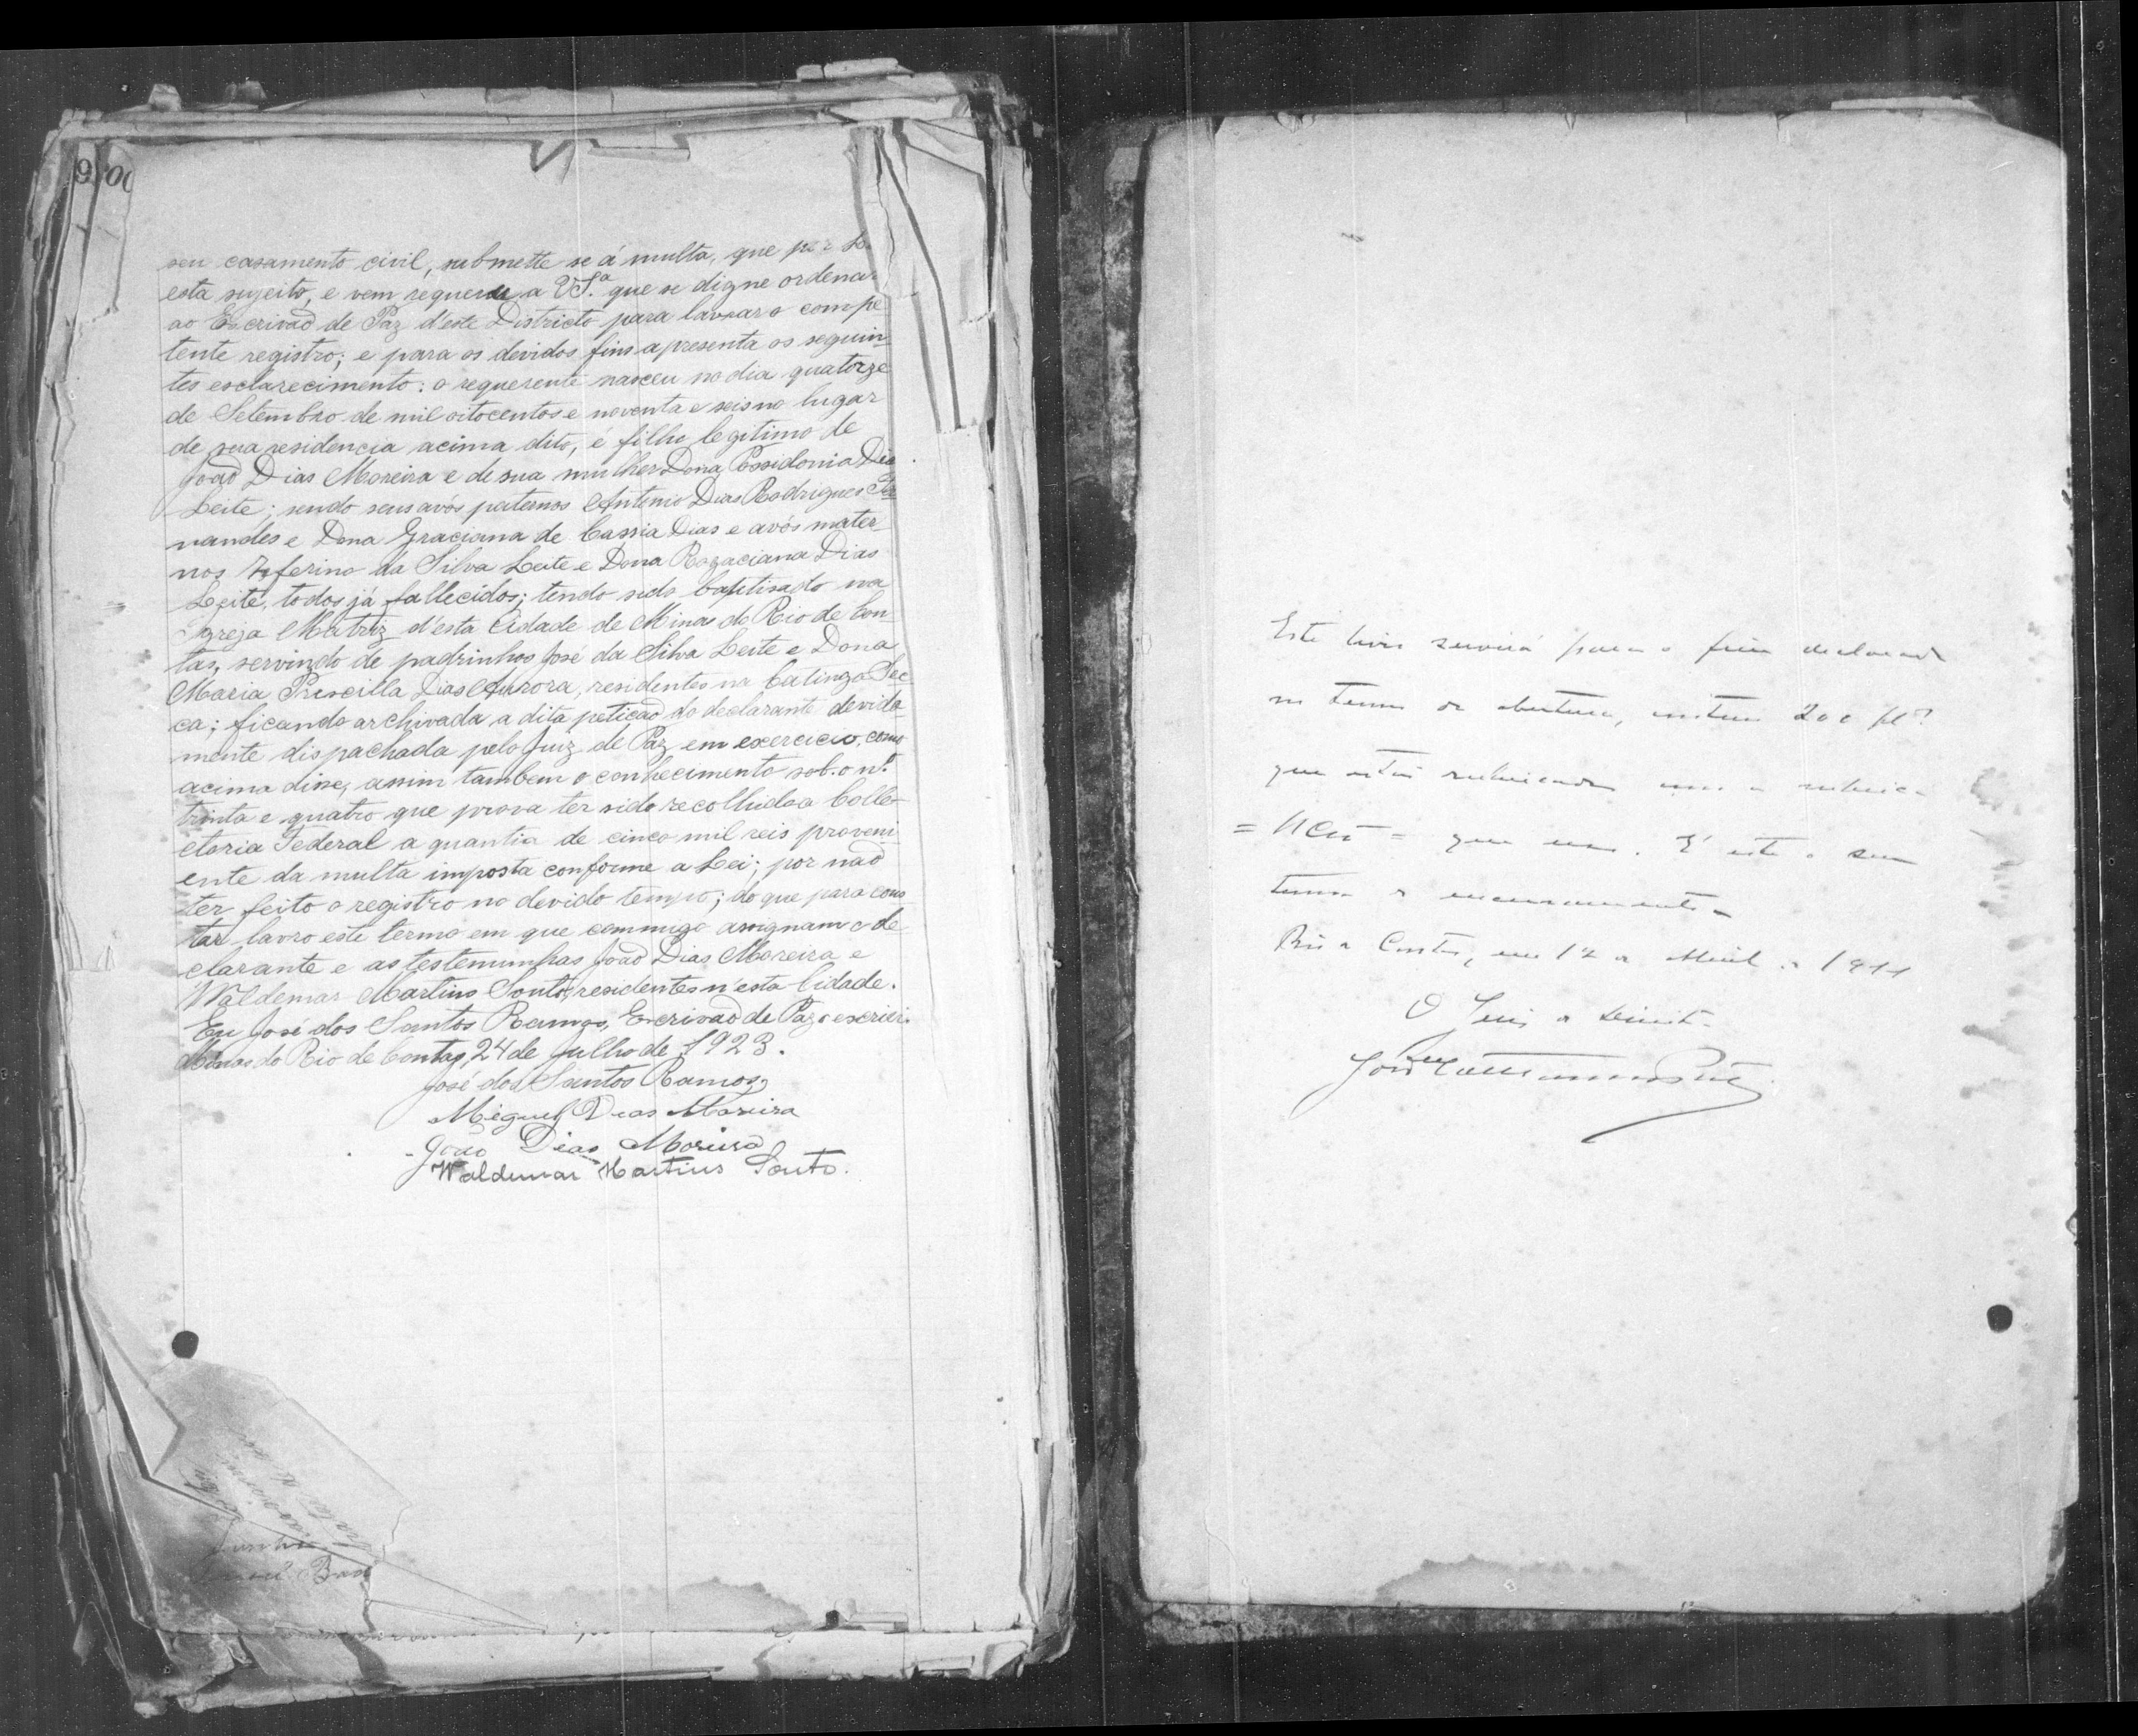 seu casamento civil, submette se á multa, que por
esta sujeito, e vem requerer a VS.ª que se digne ordenar
ao Escrivaõ de Paz d'este Districto para lavrar o compe
tente registro; e para os devidos fins apresenta os seguin-
tes esclarecimento: o requerente nasceu no dia quatorze
de Setembro de mil oitocentos e noventa e seis no lugar
de sua residencia acima dito, é filho legitimo de
João Dias Moreira e de sua mulher Dona Possidonia Dias
Leite; sendo seus avós paternos Antonio Dias Rodrigues Fer-
nandes e Dona Graciana de Cassia Dias e avós mater-
nos Zeferino da Silva Leite e Dona Rogaciana Dias
Leite, todos já fallecidos; tendo sido baptisado na
Igreja Matriz d'esta Cidade de Minas do Rio de Con
tas, servindo de padrinhos José da Silva Leite e Dona
Maria Priscilla Dias Aurora, residentes na Catinga Sec-
ca; ficando archivada a dita petição do declarante devida-
mente dispachada pelo Juiz de Paz em exercicio, como
acima disse, assim tambem o conhecimento sob. o nº.
trinta e quatro que prova ter sido recolhido a Colle-
ctoria Federal a quantia de cinco mil reis proveni-
ente da multa imposta conforme a Lei; por naõ
ter feito o registro no devido tempo; do que para cons-
tar lavro este termo em que commigo assignam o de-
clarante e as testemunhas João Dias Moreira e
Waldemar Martins Souto, residentes n'esta Cidade.
Eu José dos Santos Ramos, Escrivaõ de Paz o escrevi.
Minas do Rio de Contas, 24 de Julho de 1923.
José dos Santos Ramos,
Miguel Dias Moreira
João Dias Moreira
Waldemar Martins Souto.
Este livro servirá para o fim declarado
no termo de abertura, contem 200 fl.
que estão rubricadas com a rubrica
= = que uso. E' este o seu
termo de encerramento
Rio de Contas, em 12 de Abril de 1911
O Juiz de Direito